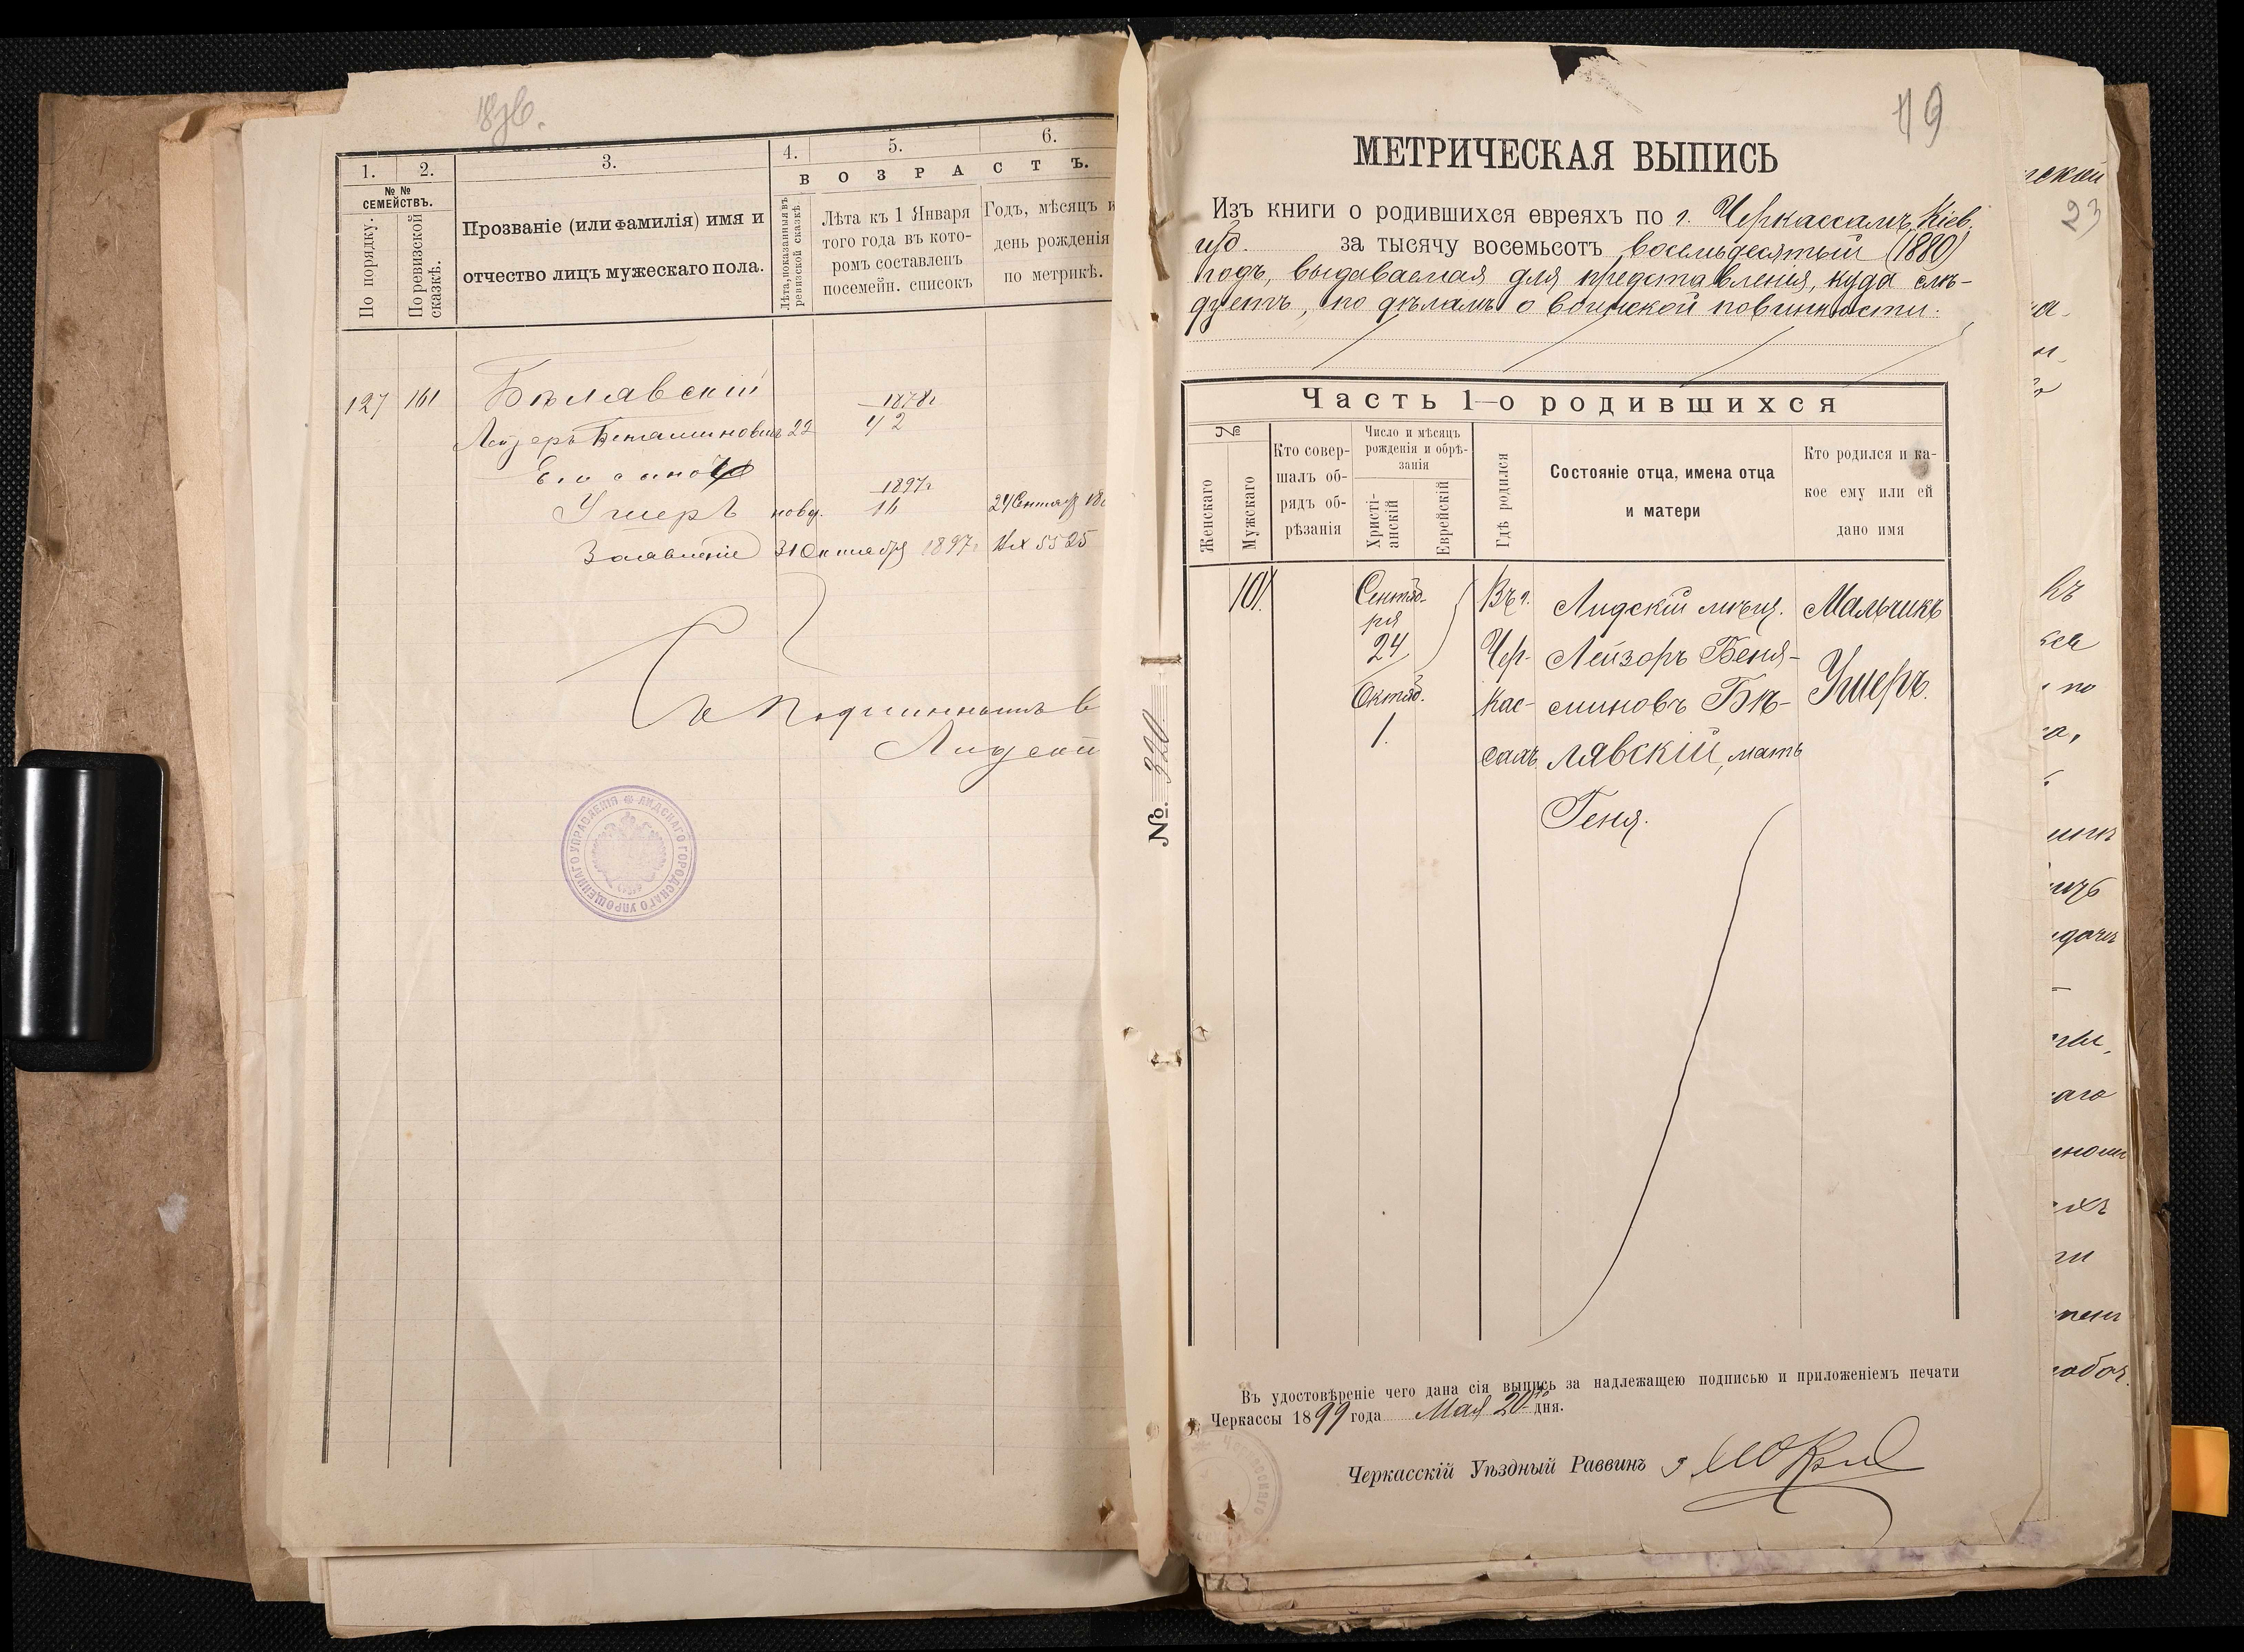 1. 2. 3. 4. 5. 6.
№ № СЕМЕЙСТВЪ.
ВОЗРАСТЪ.
По порядку.
По ревизской сказкѣ.
Прозваніе (или фамилія) имя и
отчество лицъ мужескаго пола.
Лѣта, показанныя въ ревизской сказкѣ
Лѣта къ 1 Января
того года въ кото-
ромъ составленъ
посемейн. списокъ
Годъ, мѣсяцъ и
день рожденія
по метрикѣ.
127 161 Бѣлявскій 1878г
Лейзеръ Беньяминовичъ 22 42
Его сынъ
1897г
Ушеръ новор. 16 24 Сентяб 18
Заявленіе 31 Октября 1897г Вх 5525
Съ подлиннымъ в
Лидскій
ЛИДСКАГО ГОРОДСКАГО УПРОЩЕННАГО УПРАВЛЕНІЯ
19
23
МЕТРИЧЕСКАЯ ВЫПИСЬ
Изъ книги о родившихся евреяхъ по г. Черкассамъ, Кіев.
губ. за тысячу восемьсотъ восемьдесятый (1880)
годъ, выдаваемая для представленія, куда слѣ-
дуетъ, по дѣламъ о воинской повинности.
Часть 1-о родившихся
№
Женскаго
Мужскаго
Кто совер-
шалъ об-
рядъ об-
рѣзанія
Число и мѣсяцъ
рожденія и обрѣ-
занія
Христі-
анскій
Еврейскій
Гдѣ родился
Состояніе отца, имена отца
и матери
Кто родился и ка-
кое ему или ей
дано имя
101. Сентяб- Въ г. Лидскій мѣщ. Мальчикъ
ря
24 Чер- Лейзоръ Беня- Ушеръ.
Октяб. кас- миновъ Бѣ-
1. сахъ лявскій, мать
Геня.
№. 320
Въ удостовѣреніе чего дана сія выпись за надлежащею подписью и приложеніемъ печати
Черкассы 1899 года Мая 20го дня.
Черкасскій Уѣздный Раввинъ